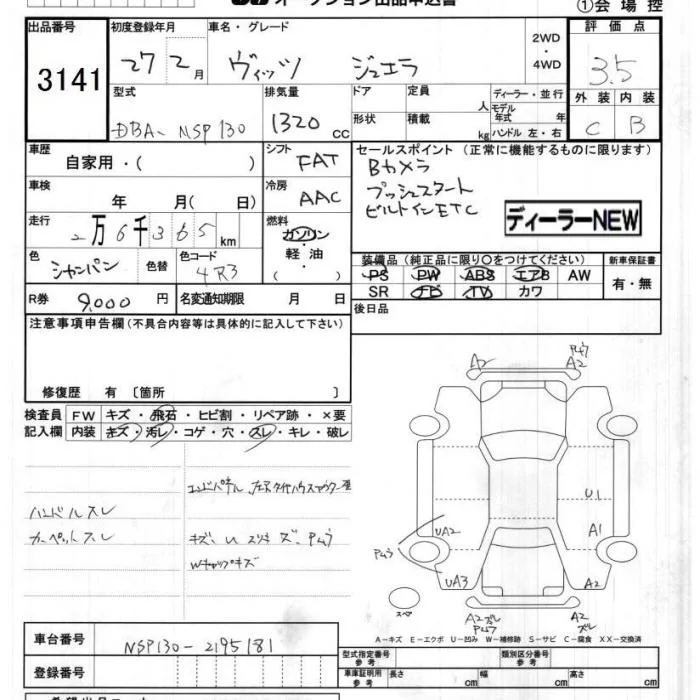 オークション出品申込書
①会場控
出品番号 3141
初度登録年月 27 2月
車名・グレード ヴィッツ ジュエラ
2WD・4WD
評価点 3.5
外装 C 内装 B
型式 DBA-NSP130
排気量 1320 cc
ドア 定員 人
形状 積載 kg
ディーラー・並行
モデル年式 年
ハンドル 左・右
車歴 自家用・( )
シフト FAT
セールスポイント (正常に機能するものに限ります)
Bカメラ
プッシュスタート
ビルトインETC
ディーラーNEW
車検 年 月( 日)
冷房 AAC
走行 2万6千365km
燃料 ガソリン・軽油・( )
色 シャンパン 色替
色コード 4R3
装備品 (純正品に限り〇をつけてください) 新車保証書
PS PW ABS エアB AW 有・無
SR TV カワ
R券 9,000円 名変通知期限 月 日
後日品
注意事項申告欄(不具合内容等は具体的に記入して下さい)
修復歴 有 〔箇所 〕
検査員 FW キズ・飛石・ヒビ割・リペア跡・×要
記入欄 内装 キズ・汚レ・コゲ・穴・スレ・キレ・破レ
エンドパネル
ハンドルスレ
カーペットスレ
Wキャップキズ
A2 A2
U1
UA2 A1
UA3 A2
A2 A2
スペア
A-キズ E-エクボ U-凹み W-補修跡 S-サビ C-腐食 XX-交換済
車台番号 NSP130-2195181
登録番号
型式指定番号 参考 類別区分番号 参考
車庫証明用 参考 長さ cm 幅 cm 高さ cm